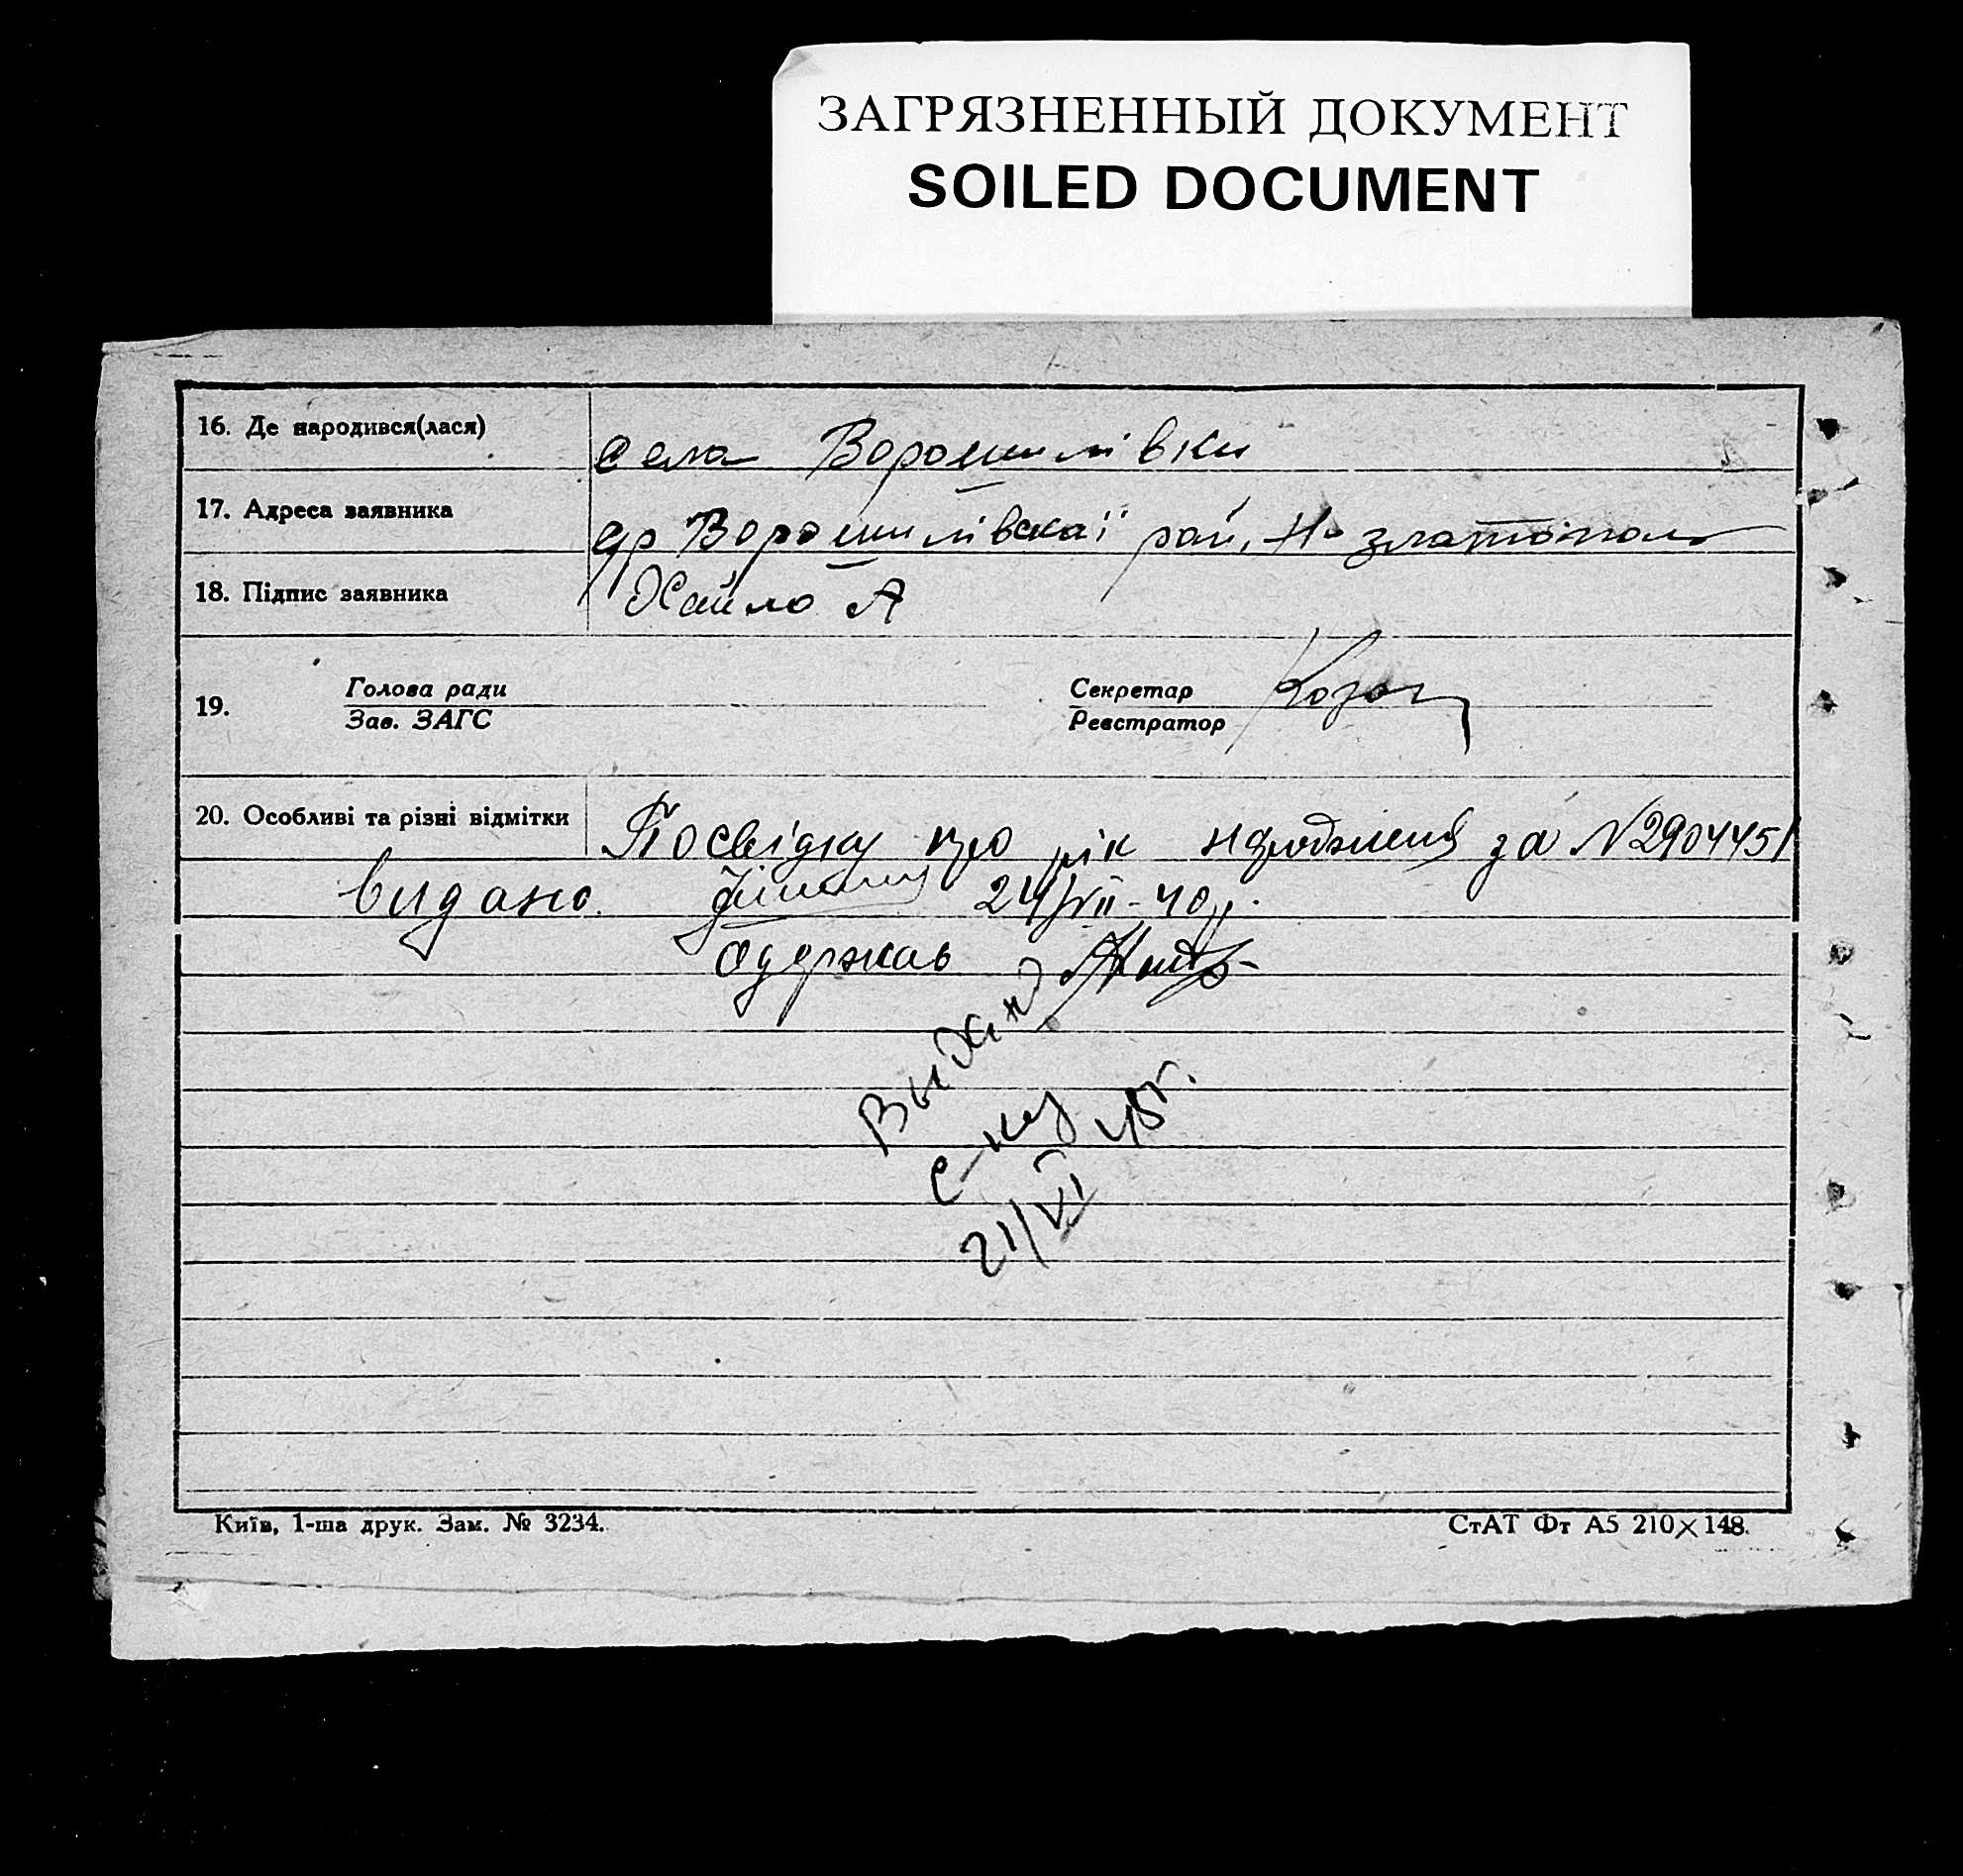 ЗАГРЯЗНЕННЫЙ ДОКУМЕНТ
SOILED DOCUMENT
16. Де народився(лася) села Ворошилівки
17. Адреса заявника Ворошилівскаї рай. Н-златополь
18. Підпис заявника Хайло А
19. Голова ради Секретар
Зав. ЗАГС Реєстратор
20. Особливі та різні відмітки Посвідку про рік народження за №2904451
видано 24/VII-40р.
одержав
Выдано
с-ку
21/VI 48г.
Київ, 1-ша друк. Зам. № 3234. СтАТ Фт А5 210×148.